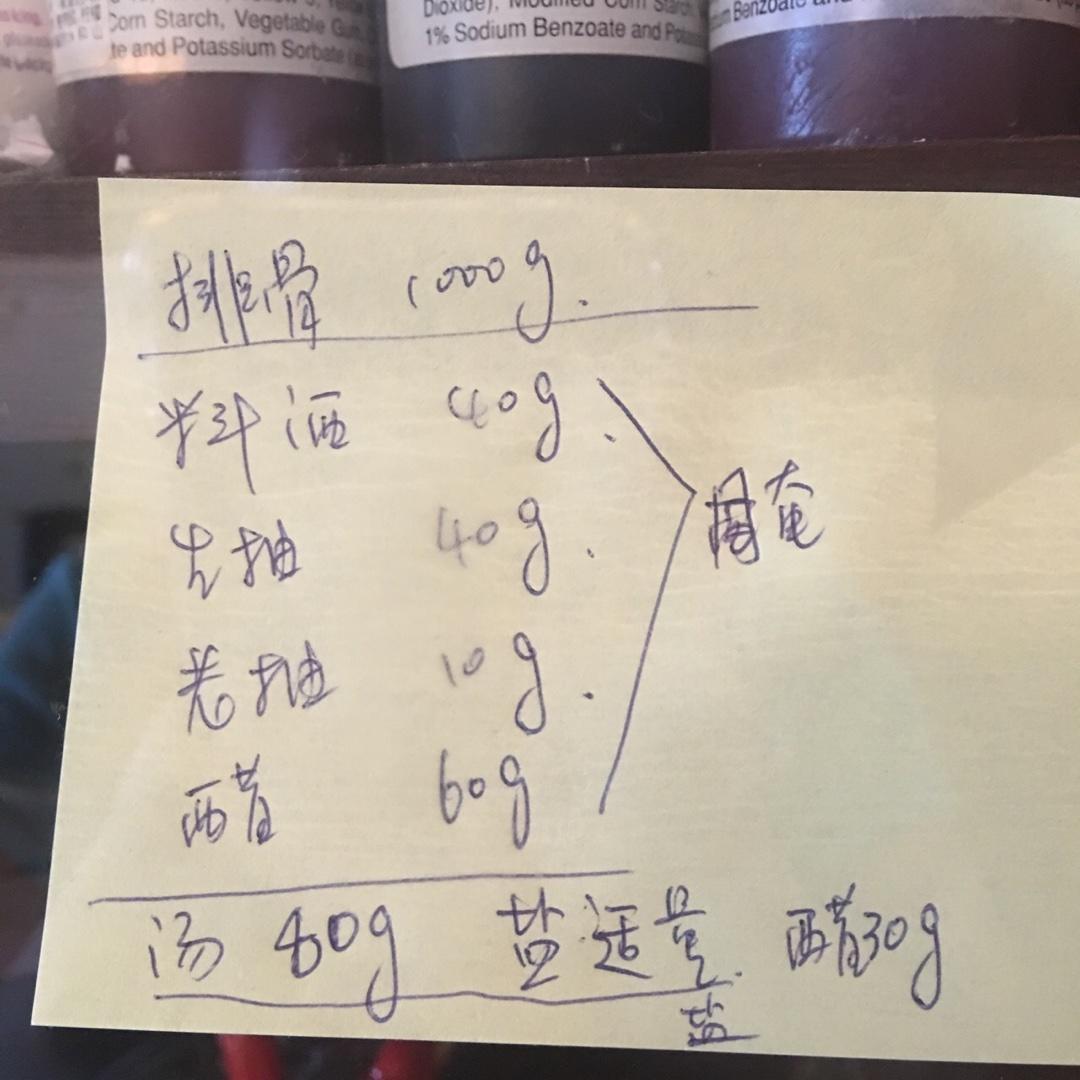 Corn Starch, Vegetable Gum
te and Potassium Sorbate
Dioxide), Modified Corn Starch
1% Sodium Benzoate and Potas
m Benzoate and
排骨 1000g.
料酒 40g.
生抽 40g.
老抽 10g.
醋 60g
腌
汤 80g 盐适量. 醋30g
盐